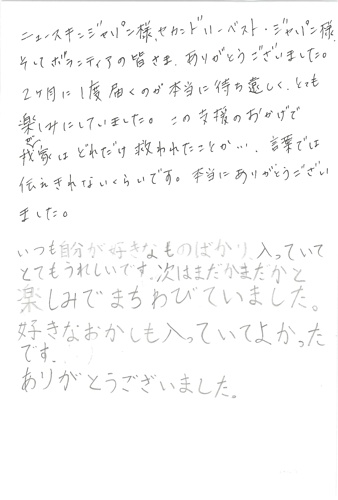 ニュースキンジャパン様、セカンドハーベスト・ジャパン様、
そしてボランティアの皆さま、ありがとうございました。
2ヶ月に1度届くのが本当に待ち遠しく、とても
楽しみにしていました。この支援のおかげで
我家はどれだけ救われたことか…。言葉では
伝えきれないくらいです。本当にありがとうござい
ました。
いつも自分が好きなものばかり入っていて
とてもうれしいです。次はまだかまだかと
楽しみでまちわびていました。
好きなおかしも入っていてよかった
です。
ありがとうございました。